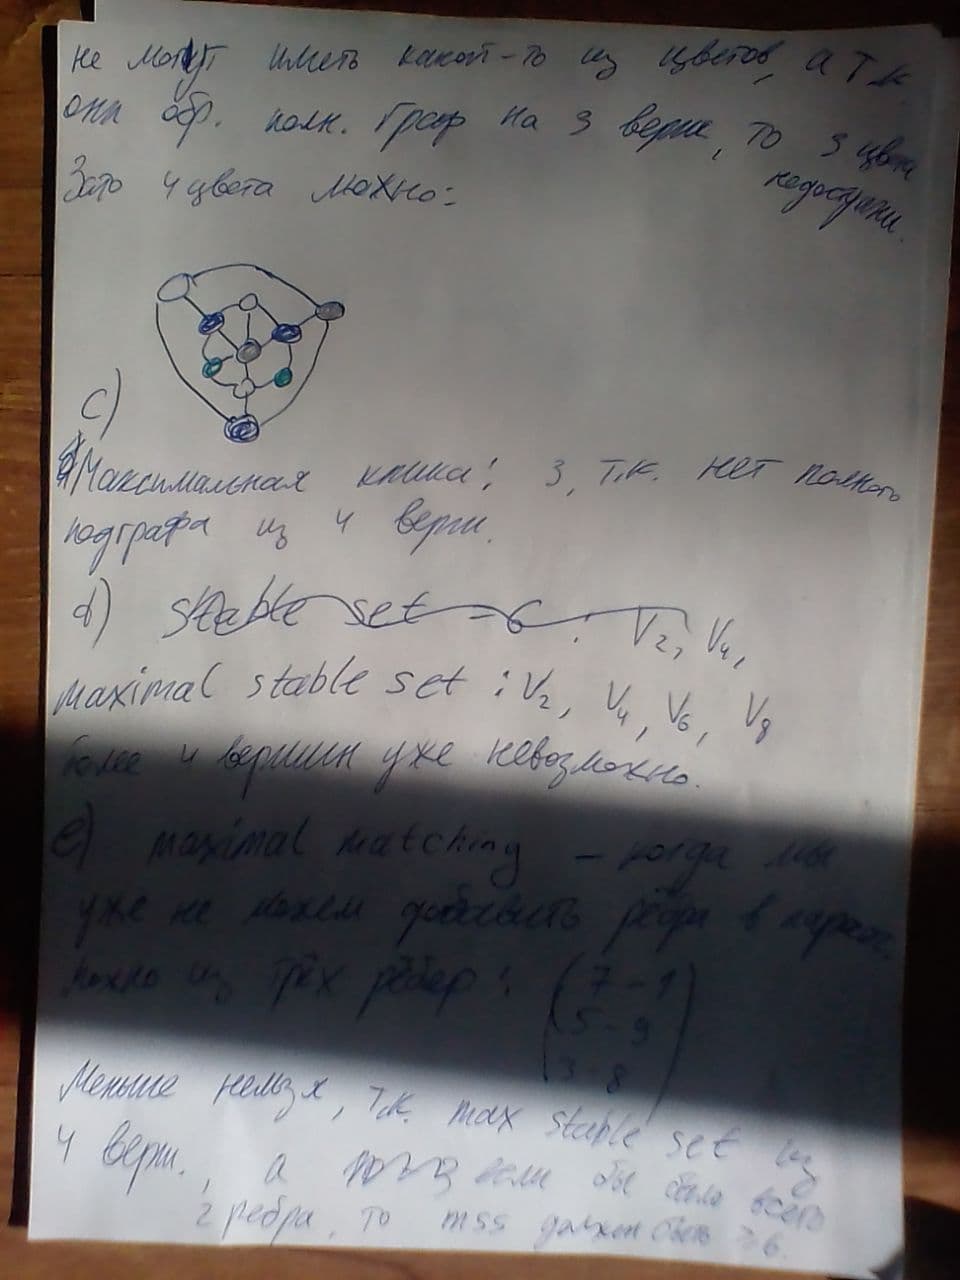 не могут иметь какой-то из цветов, а т.к.
они обр. полн. граф на 3 верш, то 3 цвета
недостижи.
Зато 4 цвета можно:
c)
Максимальная клика: 3, т.к. нет полного
подграфа из 4 верш.
d) stable set = 6 : V2, V4,
maximal stable set : V2, V4, V6, V8
более 4 вершин уже невозможно.
e) maximal matching – когда мы
уже не можем добавить рёбра в парос.
можно из трёх рёбер: (7-1
5-9
3-8)
Меньше нельзя, т.к. max stable set из
4 верш., а если бы было всего
2 ребра, то mss должен быть ≥6.